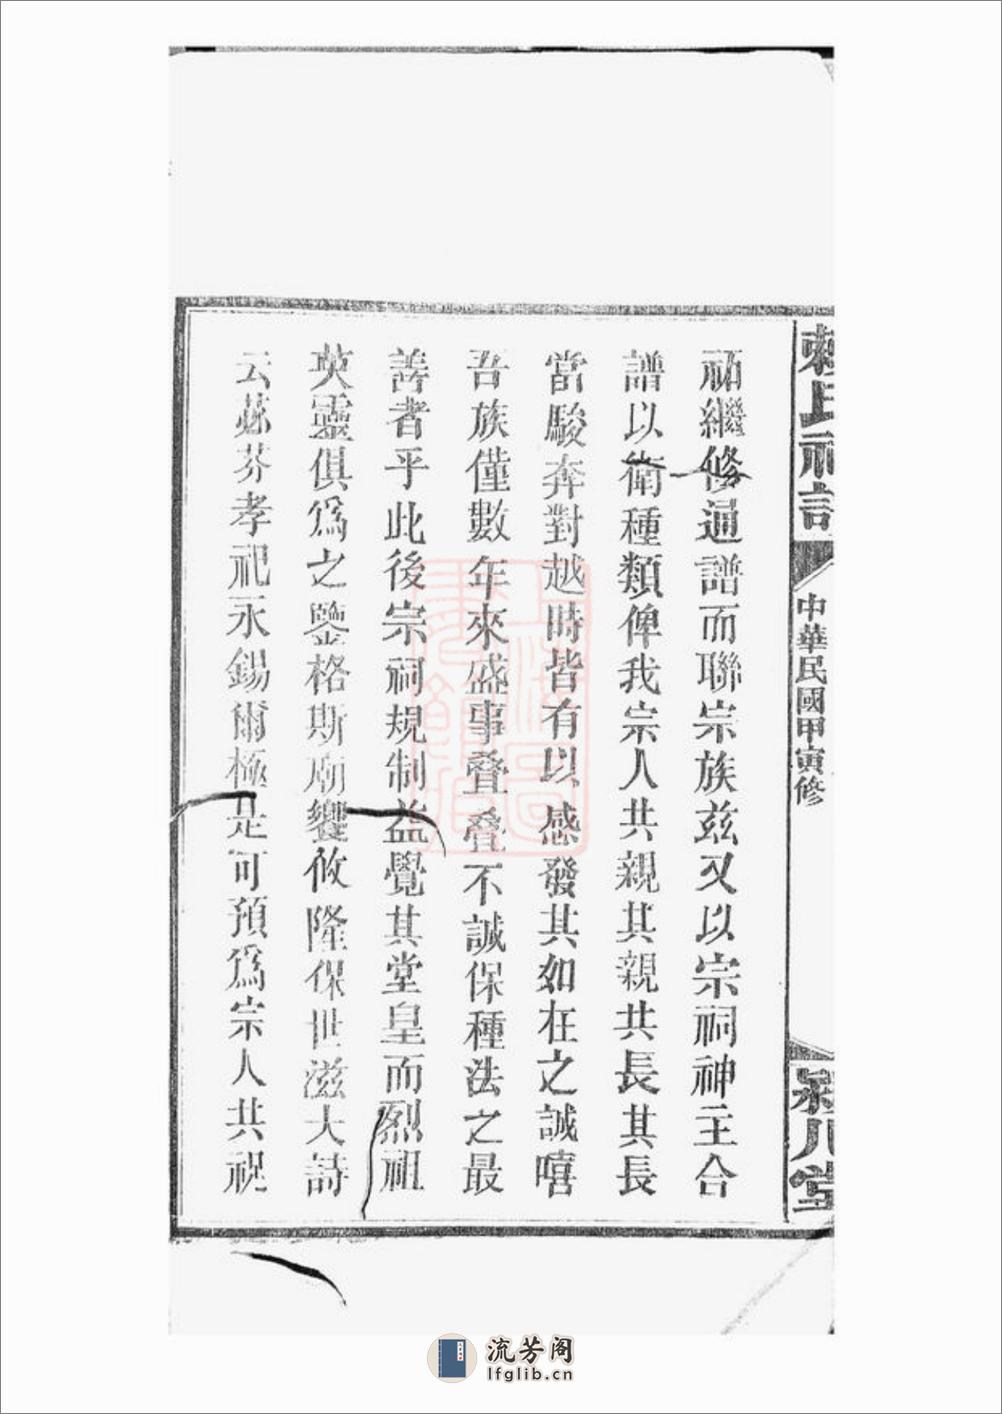 賴氏祠譜
中華民國甲寅修
潁川堂
祏繼修通譜而聯宗族玆又以宗祠神主合
譜以衛種類俾我宗人共親其親共長其長
當駿奔對越時皆有以感發其如在之誠嘻
吾族僅數年來盛事叠叠不誠保種法之最
善者乎此後宗祠規制益覺其堂皇而烈祖
英靈俱爲之鑒格斯廟饗攸隆保世滋大詩
云苾芬孝祀永錫爾極是可預爲宗人共祝
流芳阁
lfglib.cn